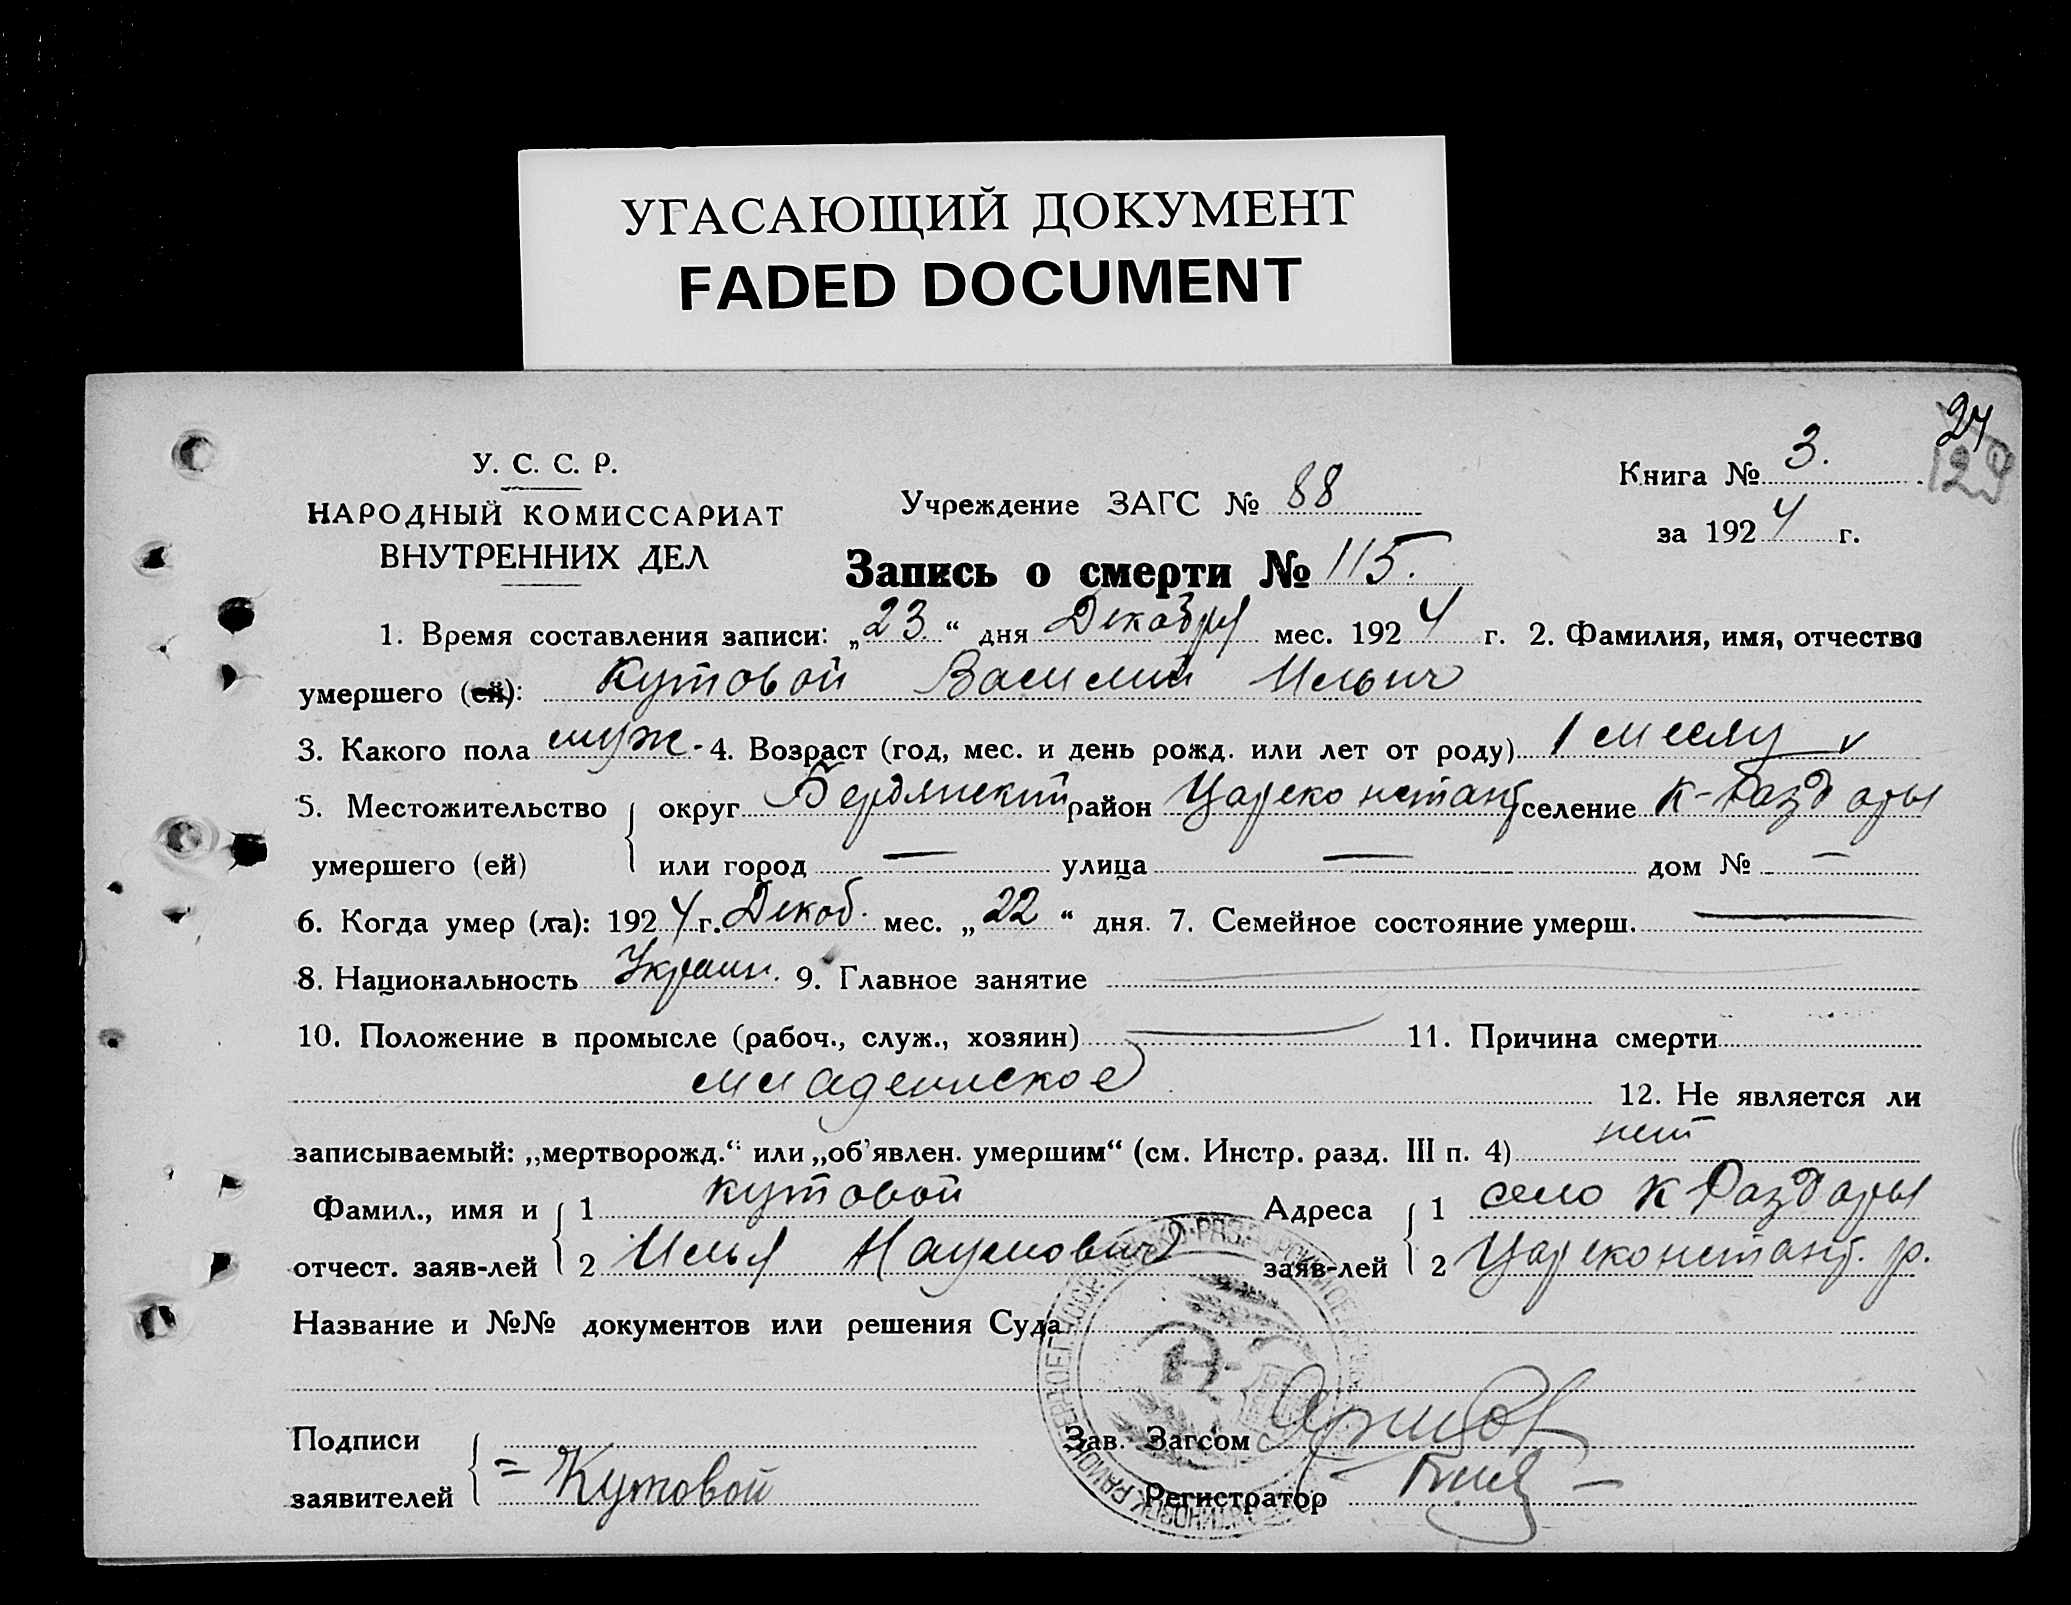 УГАСАЮЩИЙ ДОКУМЕНТ
FADED DOCUMENT
24
129
У. С. С. Р.
НАРОДНЫЙ КОМИССАРИАТ
ВНУТРЕННИХ ДЕЛ
Учреждение ЗАГС № 88
Книга № 3.
за 1924 г.
Запись о смерти № 115.
1. Время составления записи: „23“ дня Декабря мес. 1924 г. 2. Фамилия, имя, отчество
умершего (ей): Кутовой Василий Ильич
3. Какого пола муж. 4. Возраст (год, мес. и день рожд. или лет от роду) 1 месяц
5. Местожительство округ Бердянский район Цареконстант селение К-Раздоры
умершего (ей) или город — улица — дом № —
6. Когда умер (ла): 1924 г. Декаб. мес. „22“ дня. 7. Семейное состояние умерш. —
8. Национальность Украин. 9. Главное занятие
10. Положение в промысле (рабоч., служ., хозяин) — 11. Причина смерти
младенческое 12. Не является ли
записываемый: „мертворожд.“ или „об'явлен. умершим“ (см. Инстр. разд. III п. 4) нет
Фамил., имя и 1 Кутовой Адреса 1 село К Раздоры
отчест. заяв-лей 2 Илья Наумович заяв-лей 2 Цареконстант. р.
Название и №№ документов или решения Суда
Подписи Зав. Загсом
заявителей = Кутовой Регистратор